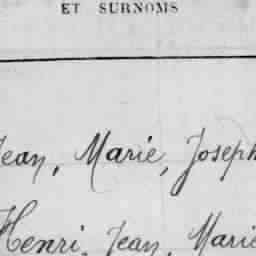 ET SURNOMS
Jean, Marie, Joseph
Henri, Jean, Marie